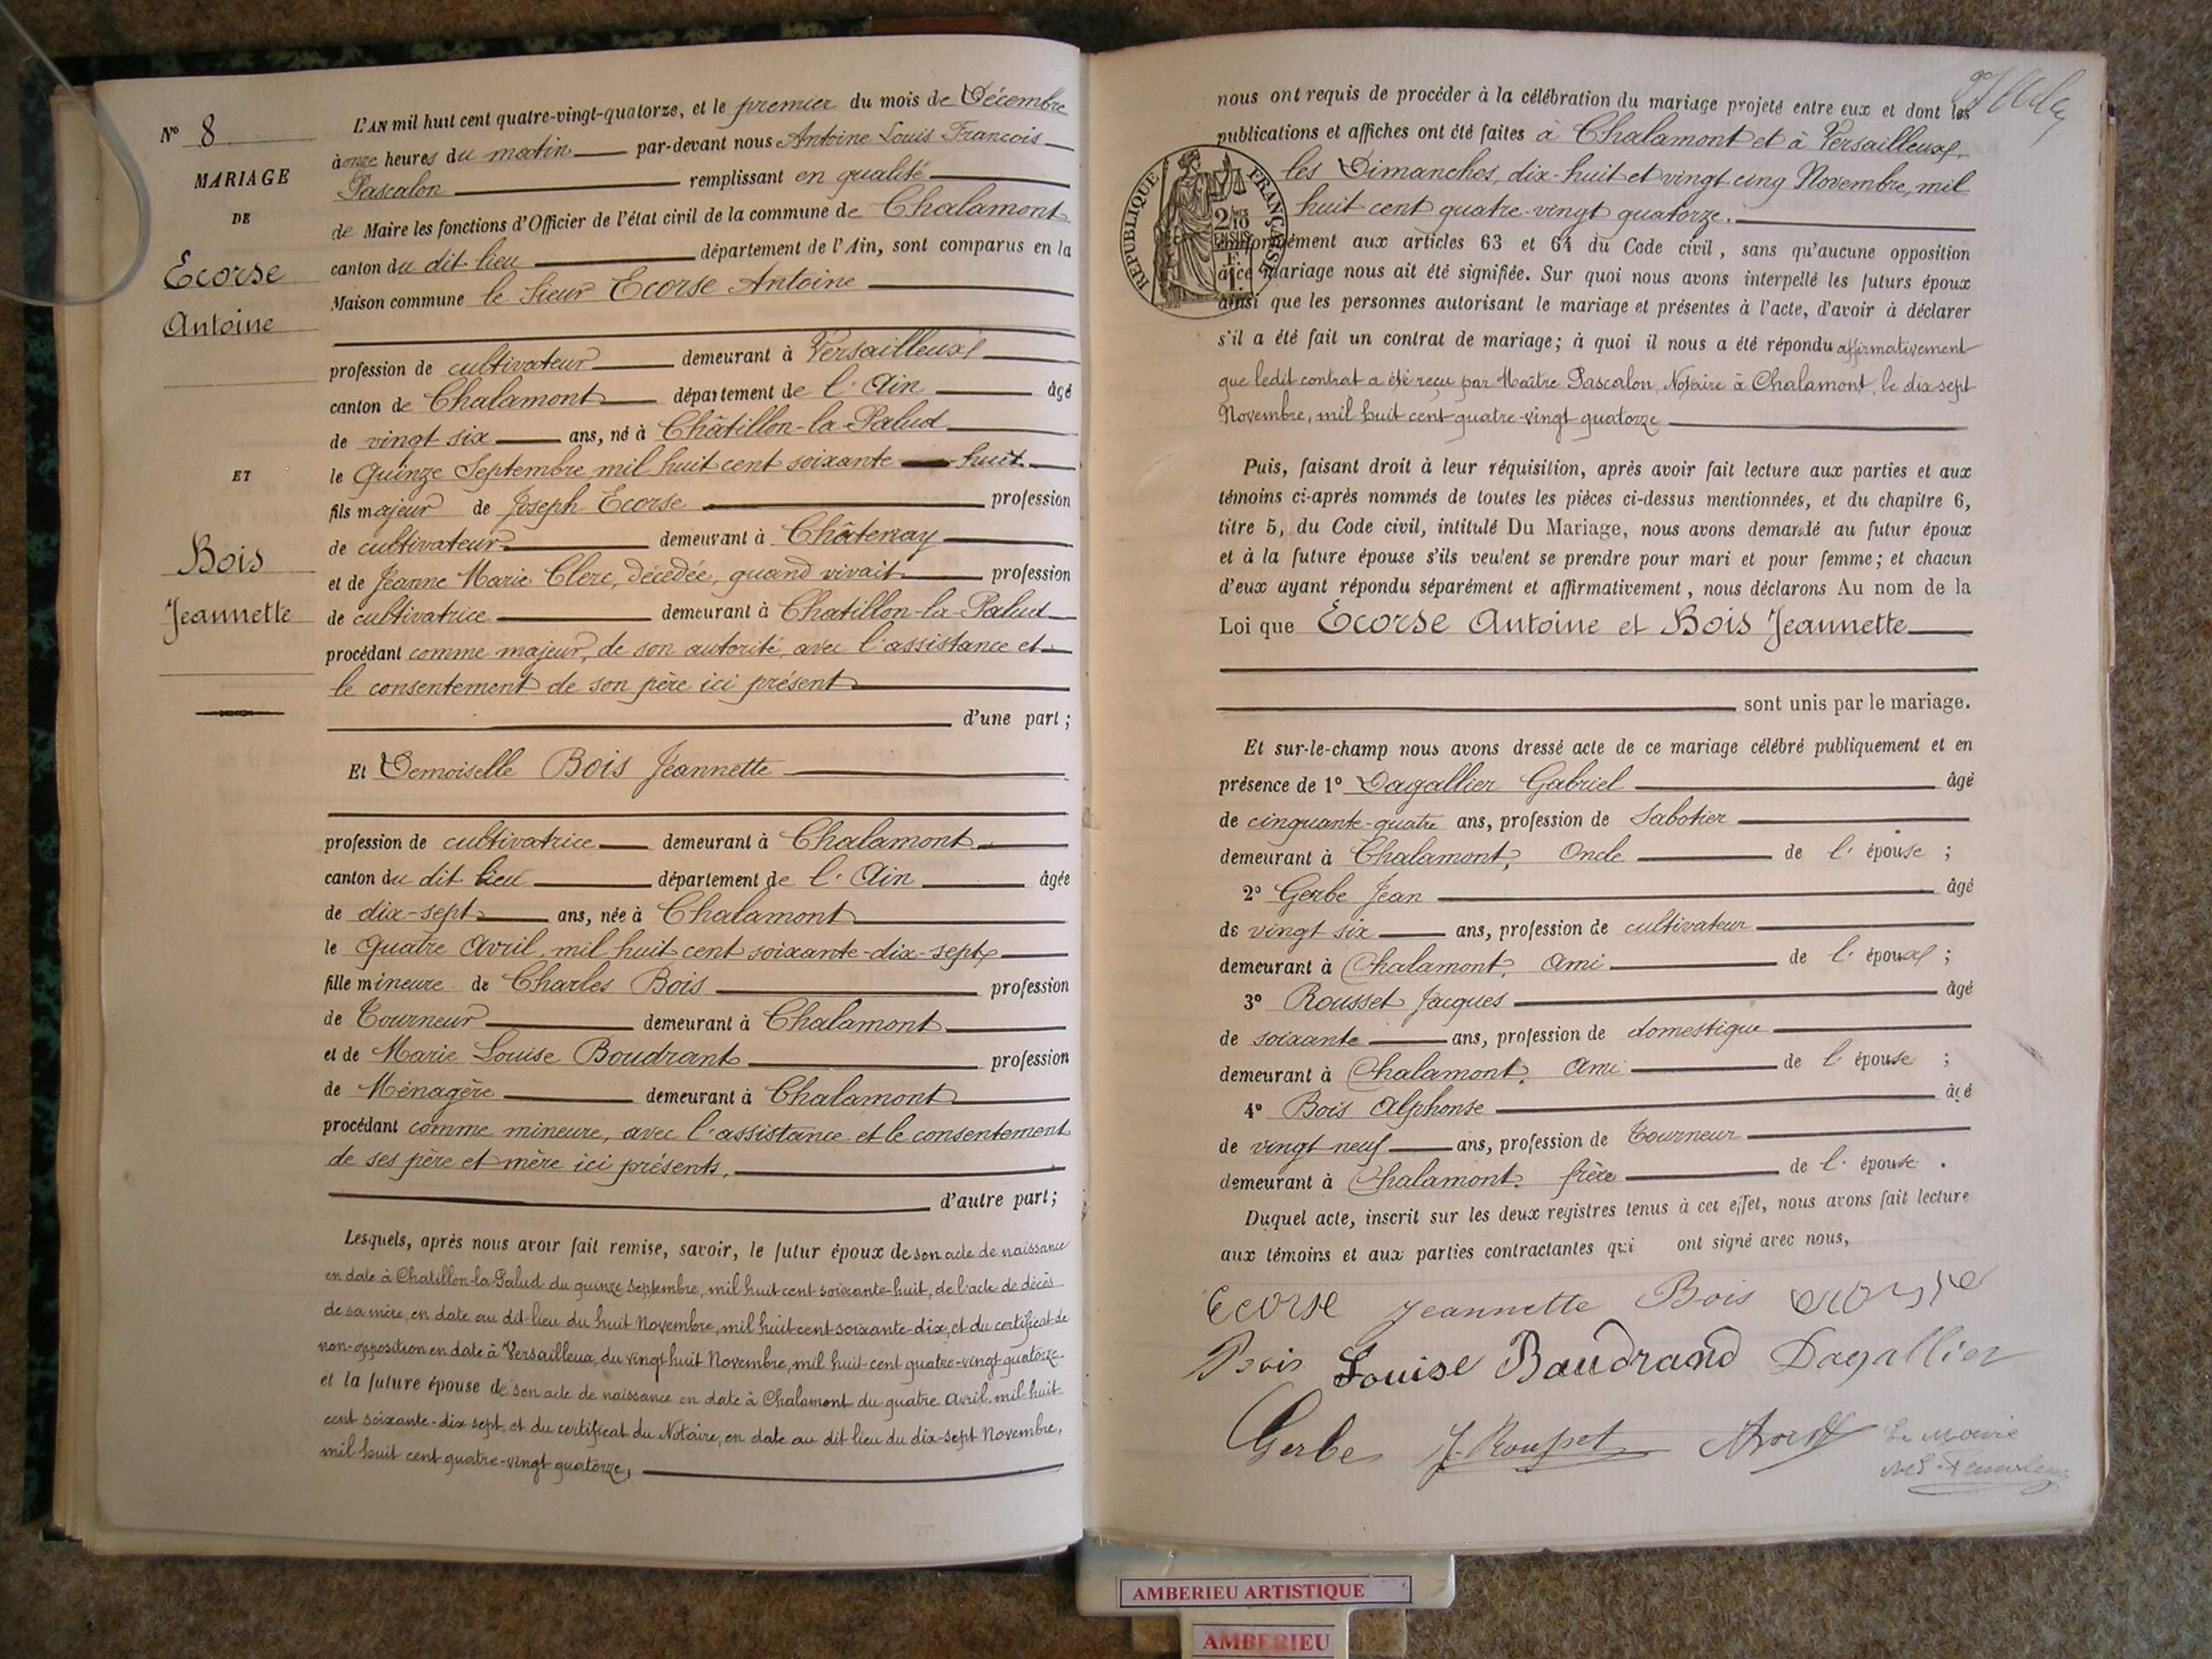 N° 8
MARIAGE
DE
Ecorse
Antoine
ET
Bois
Jeannette
L'AN mil huit cent quatre-vingt-quatorze, et le premier du mois de Décembre
à onze heures du matin par-devant nous Antoine Louis François
Pascalon remplissant en qualité
de Maire les fonctions d'Officier de l'état civil de la commune de Chalamont
canton du dit-lieu département de l'Ain, sont comparus en la
Maison commune le Sieur Ecorse Antoine
profession de cultivateur demeurant à Versailleux
canton de Chalamont département de l'Ain âgé
de vingt six ans, né à Châtillon-la-Palud
le Quinze Septembre mil huit cent soixante huit
fils majeur de Joseph Ecorse profession
de cultivateur demeurant à Châtenay
et de Jeanne Marie Clerc, décédée, quand vivait profession
de cultivatrice demeurant à Chatillon-la-Palud
procédant comme majeur, de son autorité, avec l'assistance et
le consentement de son père ici présent
d'une part;
Et Demoiselle Bois Jeannette
profession de cultivatrice demeurant à Chalamont
canton du dit lieu département de l'Ain âgée
de dix-sept ans, née à Chalamont
le Quatre Avril, mil huit cent soixante-dix-sept
fille mineure de Charles Bois profession
de Tourneur demeurant à Chalamont
et de Marie Louise Boudrant profession
de Ménagère demeurant à Chalamont
procédant comme mineure, avec l'assistance et le consentement
de ses père et mère ici présents.
d'autre part;
Lesquels, après nous avoir fait remise, savoir, le futur époux de son acte de naissance
en date à Chatillon-la-Palud du quinze Septembre, mil huit cent soixante-huit, de l'acte de décès
de sa mère, en date au dit-lieu du huit Novembre, mil huit cent soixante-dix, et du certificat de
non-opposition en date à Versailleux, du vingt huit Novembre, mil huit-cent quatre-vingt-quatorze
et la future épouse de son acte de naissance en date à Chalamont du quatre Avril, mil huit
cent soixante-dix sept, et du certificat du Notaire, en date au dit lieu du dix-sept Novembre,
mil huit cent quatre-vingt quatorze,
nous ont requis de procéder à la célébration du mariage projeté entre eux et dont les
publications et affiches ont été faites à Chalamont et à Versailleux,
les Dimanches, dix-huit et vingt cinq Novembre, mil
huit cent quatre-vingt quatorze.
RÉPUBLIQUE FRANÇAISE
2/10
EN SUS
1 F.
conformément aux articles 63 et 64 du Code civil, sans qu'aucune opposition
à ce mariage nous ait été signifiée. Sur quoi nous avons interpellé les futurs époux
ainsi que les personnes autorisant le mariage et présentes à l'acte, d'avoir à déclarer
s'il a été fait un contrat de mariage; à quoi il nous a été répondu affirmativement
que ledit contrat a été reçu par Maître Pascalon, Notaire à Chalamont, le dix sept
Novembre, mil huit cent quatre-vingt quatorze
Puis, faisant droit à leur réquisition, après avoir fait lecture aux parties et aux
témoins ci-après nommés de toutes les pièces ci-dessus mentionnées, et du chapitre 6,
titre 5, du Code civil, intitulé Du Mariage, nous avons demandé au futur époux
et à la future épouse s'ils veulent se prendre pour mari et pour femme; et chacun
d'eux ayant répondu séparément et affirmativement, nous déclarons Au nom de la
Loi que Ecorse Antoine et Bois Jeannette
sont unis par le mariage.
Et sur-le-champ nous avons dressé acte de ce mariage célébré publiquement et en
présence de 1° Dagallier Gabriel âgé
de cinquante-quatre ans, profession de Sabotier
demeurant à Chalamont, Oncle de l'épouse ;
2° Gerbe Jean âgé
de vingt six ans, profession de cultivateur
demeurant à Chalamont, Ami de l'époux ;
3° Rousset Jacques âgé
de soixante ans, profession de domestique
demeurant à Chalamont, Ami de l'épouse ;
4° Bois Alphonse âgé
de vingt neuf ans, profession de Tourneur
demeurant à Chalamont, frère de l'épouse.
Duquel acte, inscrit sur les deux registres tenus à cet effet, nous avons fait lecture
aux témoins et aux parties contractantes qui ont signé avec nous,
Ecorse Jeannette Bois ecorse
Bois Louise Baudrand Dagallier
Gerbe J. Rousset ABois Le maire
AMBERIEU ARTISTIQUE
AMBERIEU